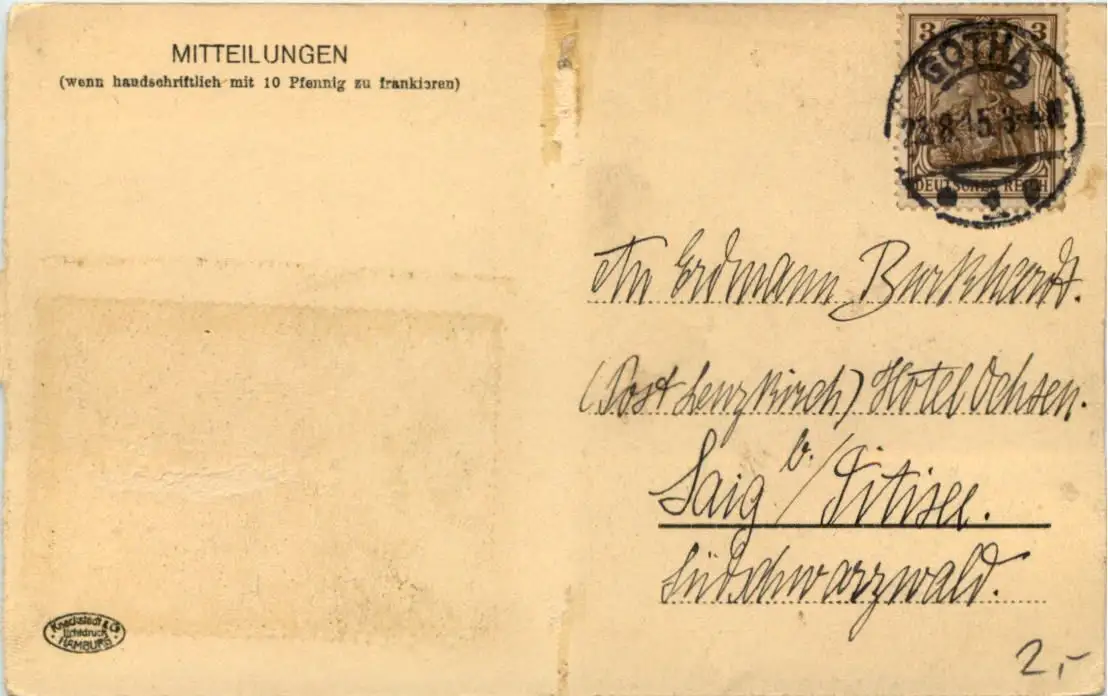 MITTEILUNGEN
(wenn handschriftlich mit 10 Pfennig zu frankieren)
3 3
GOTHA
23.8.15.3-4N
DEUTSCHES REICH
An Erdmann Burkhardt.
(Post Lenzkirch) Hotel Ochsen.
Saig b./Titisee.
Südschwarzwald.
Knackstedt & Co
Lichtdruck
HAMBURG
2,-